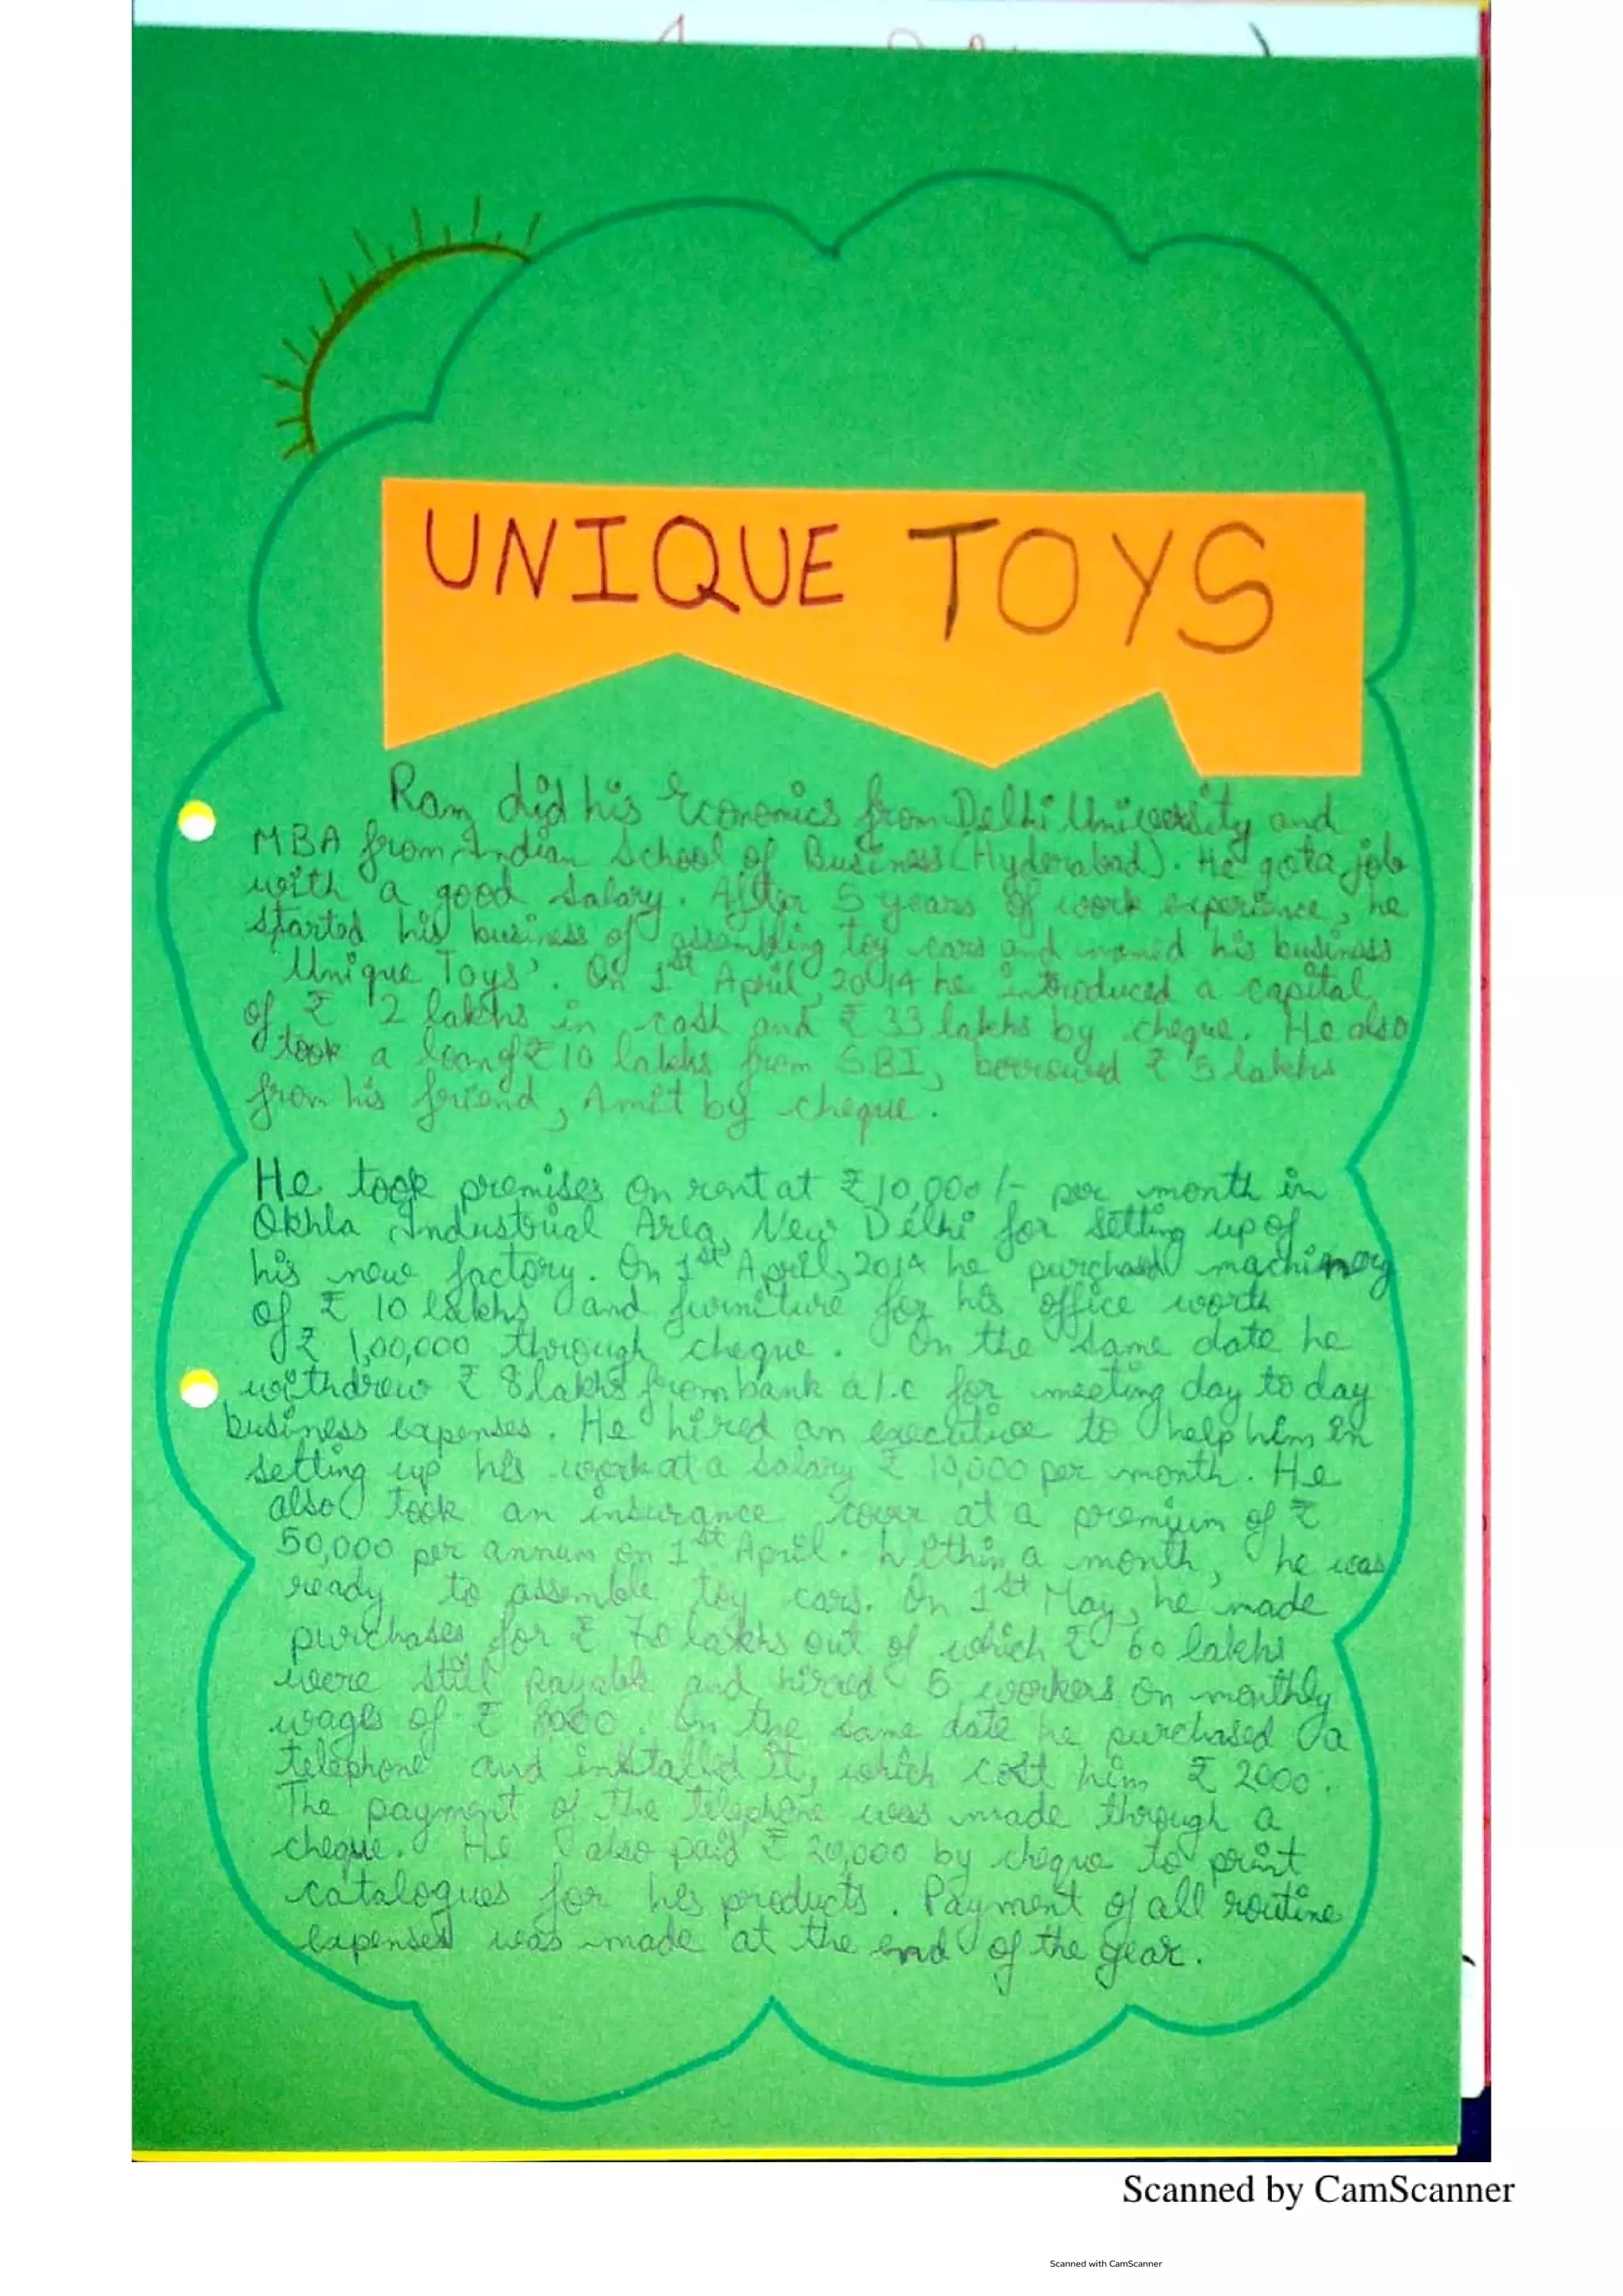 UNIQUE TOYS
Ram did his Economics from Delhi University and
MBA from Indian School of Business (Hyderabad). He got a job
with a good salary. After 5 years of work experience, he
started his business of assembling toy cars and named his business
'Unique Toys'. On 1st April, 2014 he introduced a capital
of ₹ 12 lakhs in cash and ₹ 33 lakhs by cheque. He also
took a loan of ₹ 10 lakhs from SBI, borrowed ₹ 5 lakhs
from his friend, Amit by cheque.
He took premises on rent at ₹ 10,000/- per month in
Okhla Industrial Area, New Delhi for setting up of
his new factory. On 1st April, 2014 he purchased machinery
of ₹ 10 lakhs and furniture for his office worth
₹ 1,00,000 through cheque. On the same date he
withdrew ₹ 8 lakhs from bank a/c for meeting day to day
business expenses. He hired an executive to help him in
setting up his work at a salary ₹ 10,000 per month. He
also took an insurance cover at a premium of ₹
50,000 per annum on 1st April. Within a month, he was
ready to assemble toy cars. On 1st May, he made
purchases for ₹ 70 lakhs out of which ₹ 60 lakhs
were still payable and hired 5 workers on monthly
wages of ₹ 8000. On the same date he purchased a
telephone and installed it, which cost him ₹ 2000.
The payment of the telephone was made through a
cheque. He also paid ₹ 20,000 by cheque to print
catalogues for his products. Payment of all routine
expenses was made at the end of the year.
Scanned by CamScanner
Scanned with CamScanner